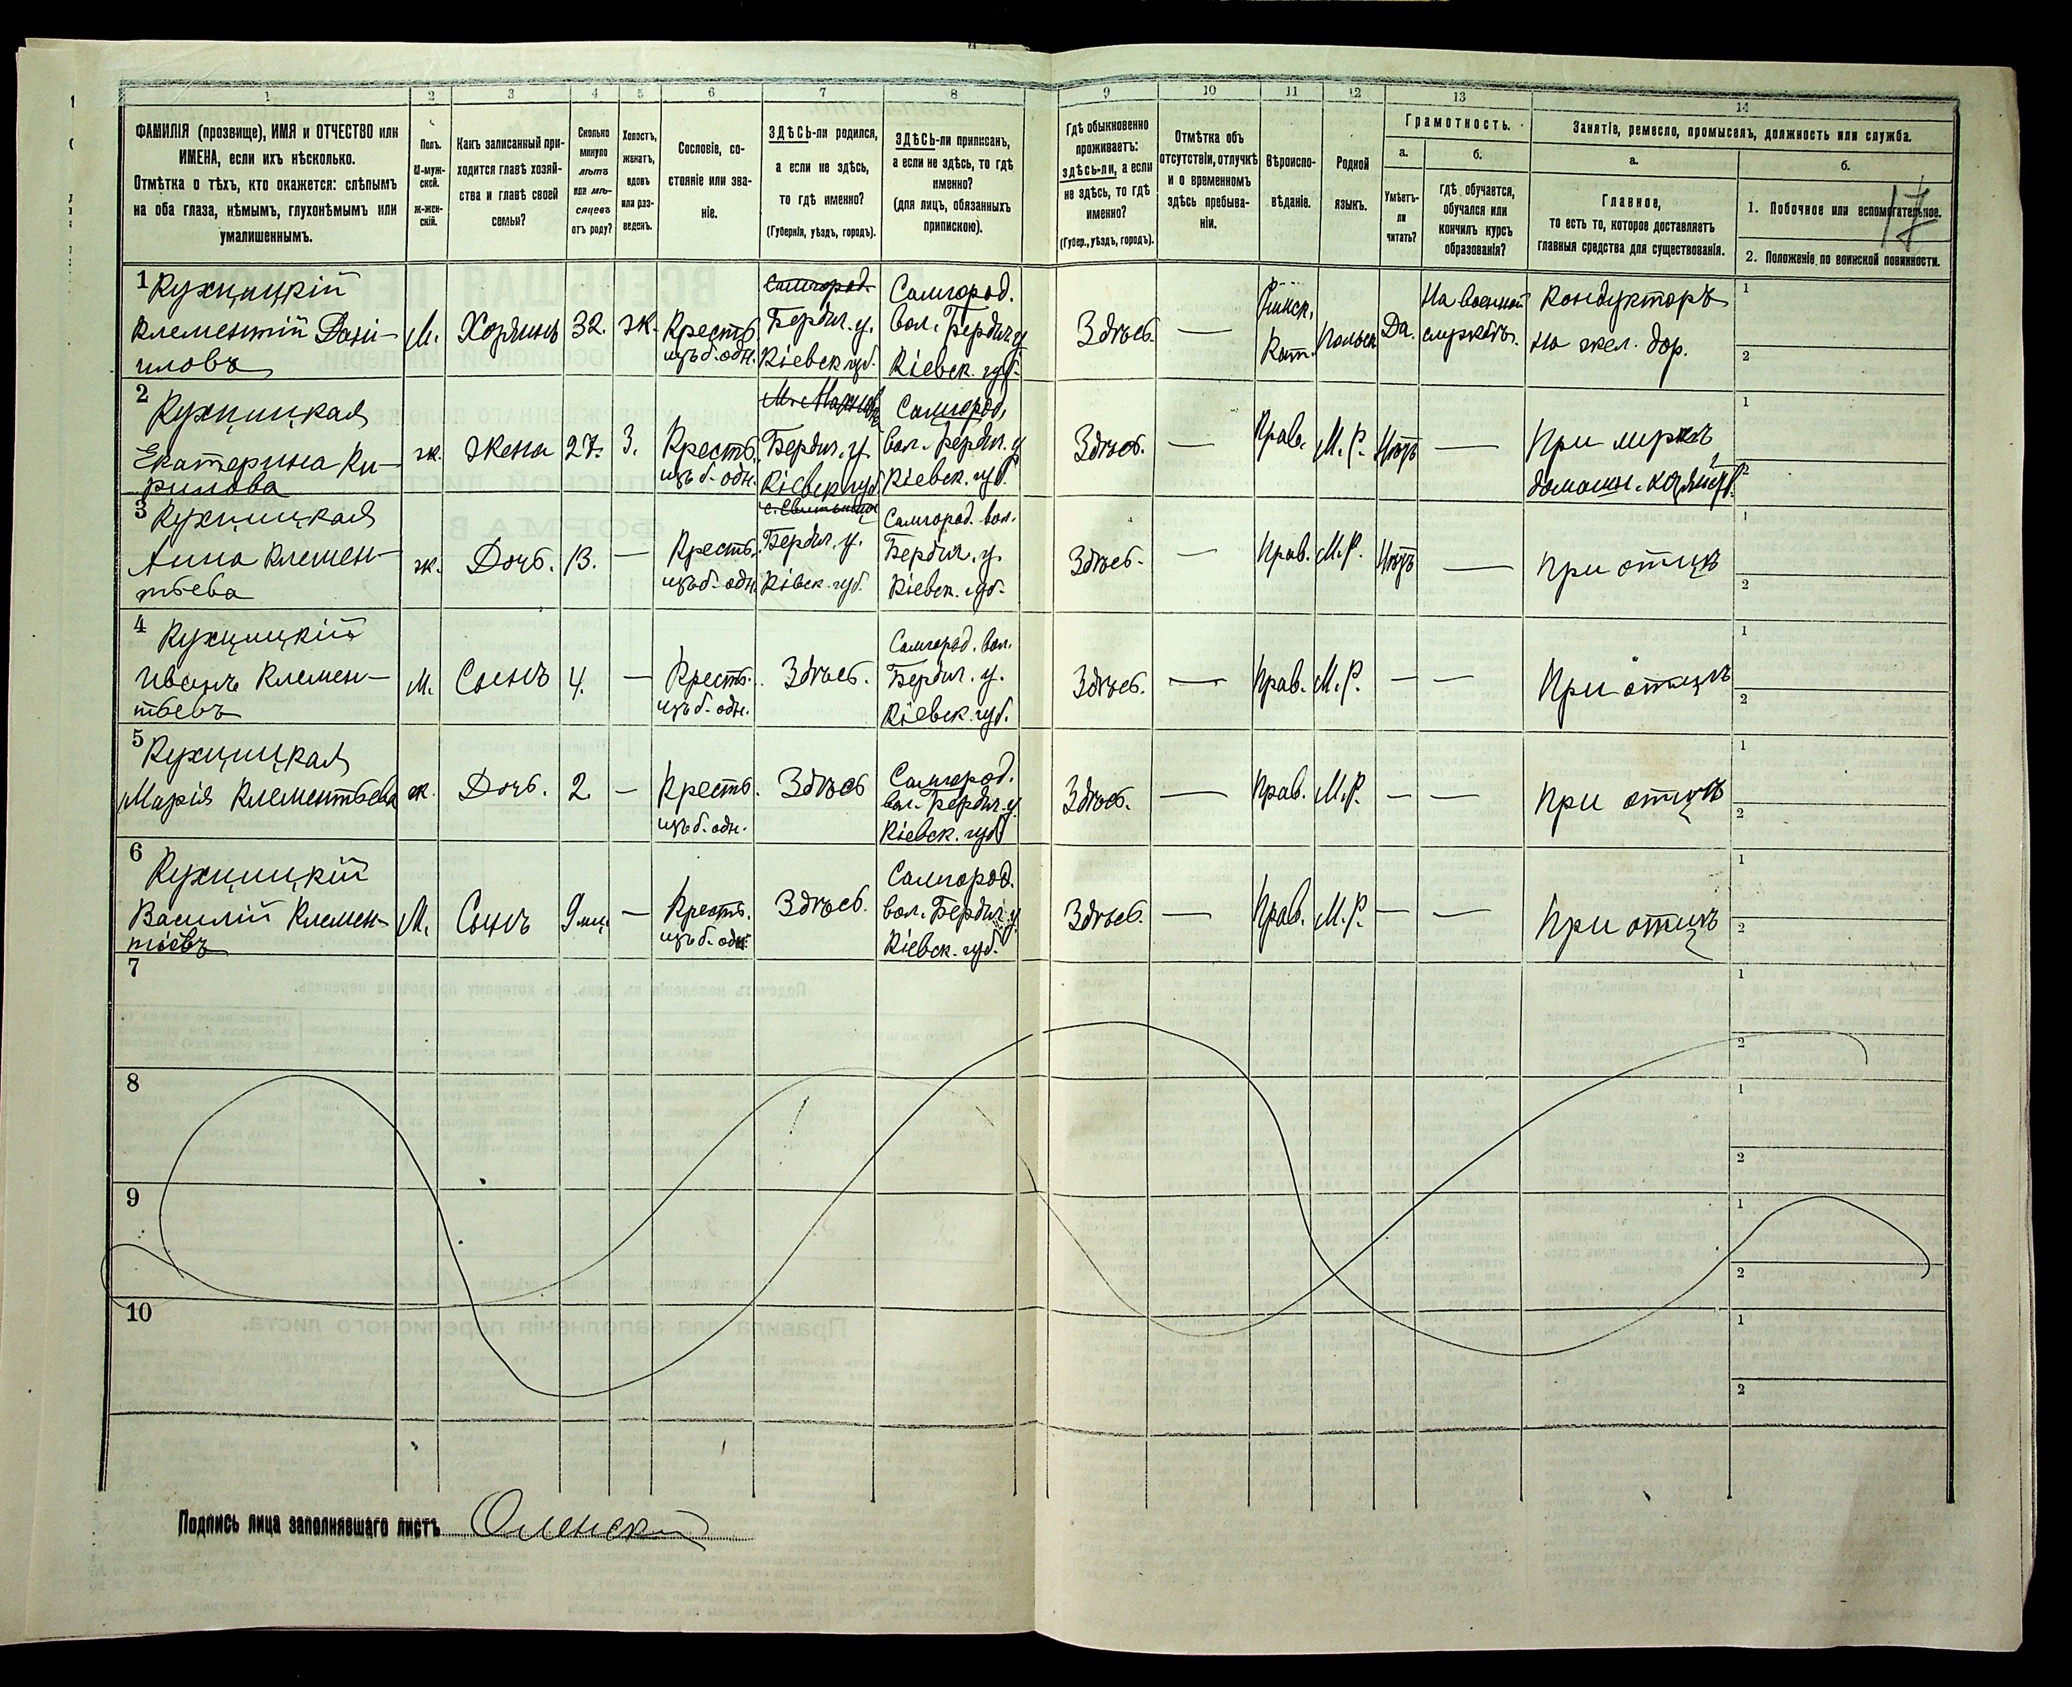 1
2
3
4
5
6
7
8
9
10
11
12
13
14
ФАМИЛІЯ (прозвище), ИМЯ и ОТЧЕСТВО или
ИМЕНА, если ихъ нѣсколько.
Отмѣтка о тѣхъ, кто окажется: слѣпымъ
на оба глаза, нѣмымъ, глухонѣмымъ или
умалишеннымъ.
Полъ.
М-муж-
ской.
ж-жен-
скій.
Какъ записанный при-
ходится главѣ хозяй-
ства и главѣ своей
семьи?
Сколько
минуло
лѣтъ
или мѣ-
сяцевъ
отъ роду?
Холостъ,
женатъ,
вдовъ
или раз-
веденъ.
Сословіе, со-
стояніе или зва-
ніе.
ЗДѢСЬ-ли родился,
а если не здѣсь,
то гдѣ именно?
(Губернія, уѣздъ, городъ).
ЗДѢСЬ-ли приписанъ,
а если не здѣсь, то гдѣ
именно?
(для лицъ, обязанныхъ
припискою).
Гдѣ обыкновенно
проживаетъ:
здѣсь-ли, а если
не здѣсь, то гдѣ
именно?
(Губер., уѣздъ, городъ).
Отмѣтка объ
отсутствіи, отлучкѣ
и о временномъ
здѣсь пребыва-
ніи.
Вѣроиспо-
вѣданіе.
Родной
языкъ.
Грамотность.
а.
Умѣетъ-
ли
читать?
б.
гдѣ обучается,
обучался или
кончилъ курсъ
образованія?
Занятіе, ремесло, промыселъ, должность или служба.
а.
Главное,
то есть то, которое доставляетъ
главныя средства для существованія.
б.
1. Побочное или вспомогательное.
2. Положеніе по воинской повинности.
17
1 Рухницкій
Клементій Дани-
иловъ
М.
Хозяинъ
32.
ж.
Крестъ.
изъ б. одн.
Самгород.
Бердич. у.
Кіевск. губ.
Самгород.
вол. Бердич. у.
Кіевск. губ.
Здѣсь.
—
Римск.
Кат.
Польск.
Да.
На военной
службѣ.
Кондукторъ
на жел. дор.
1
2
2
Рухницкая
Екатерина Ки-
рилова
ж.
Жена
27.
З.
Крестъ.
изъ б. одн.
Бердич. у.
Кіевск. губ.
Самгород.
вол. Бердич. у.
Кіевск. губ.
Здѣсь.
—
Прав.
М. Р.
Нѣтъ
—
При мужѣ
домашн. хозяйст.
1
2
3 Рухницкая
Анна Клемен-
тьева
ж.
Дочь.
13.
—
Крестъ.
изъ б. одн.
Бердич. у.
Кіевск. губ.
Самгород. вол.
Бердич. у.
Кіевск. губ.
Здѣсь.
—
Прав.
М. Р.
Нѣтъ
—
При отцѣ
1
2
4 Рухницкій
Иванъ Клемен-
тьевъ
М.
Сынъ
4.
—
Крестъ.
изъ б. одн.
Здѣсь.
Самгород. вол.
Бердич. у.
Кіевск. губ.
Здѣсь.
—
Прав.
М. Р.
—
—
При отцѣ
1
2
5 Рухницкая
Марія Клементьева
ж.
Дочь.
2
—
Крестъ.
изъ б. одн.
Здѣсь
Самгород.
вол. Бердич. у.
Кіевск. губ.
Здѣсь.
—
Прав.
М. Р.
—
—
При отцѣ
1
2
6
Рухницкій
Василій Клемен-
тіевъ
М.
Сынъ
9 мц.
—
Крестъ.
изъ б. одн.
Здѣсь.
Самгород.
вол. Бердич. у.
Кіевск. губ.
Здѣсь.
—
Прав.
М. Р.
—
—
При отцѣ
1
2
7
1
2
8
1
2
9
1
2
10
1
2
Подпись лица заполнявшаго листъ Оленскій